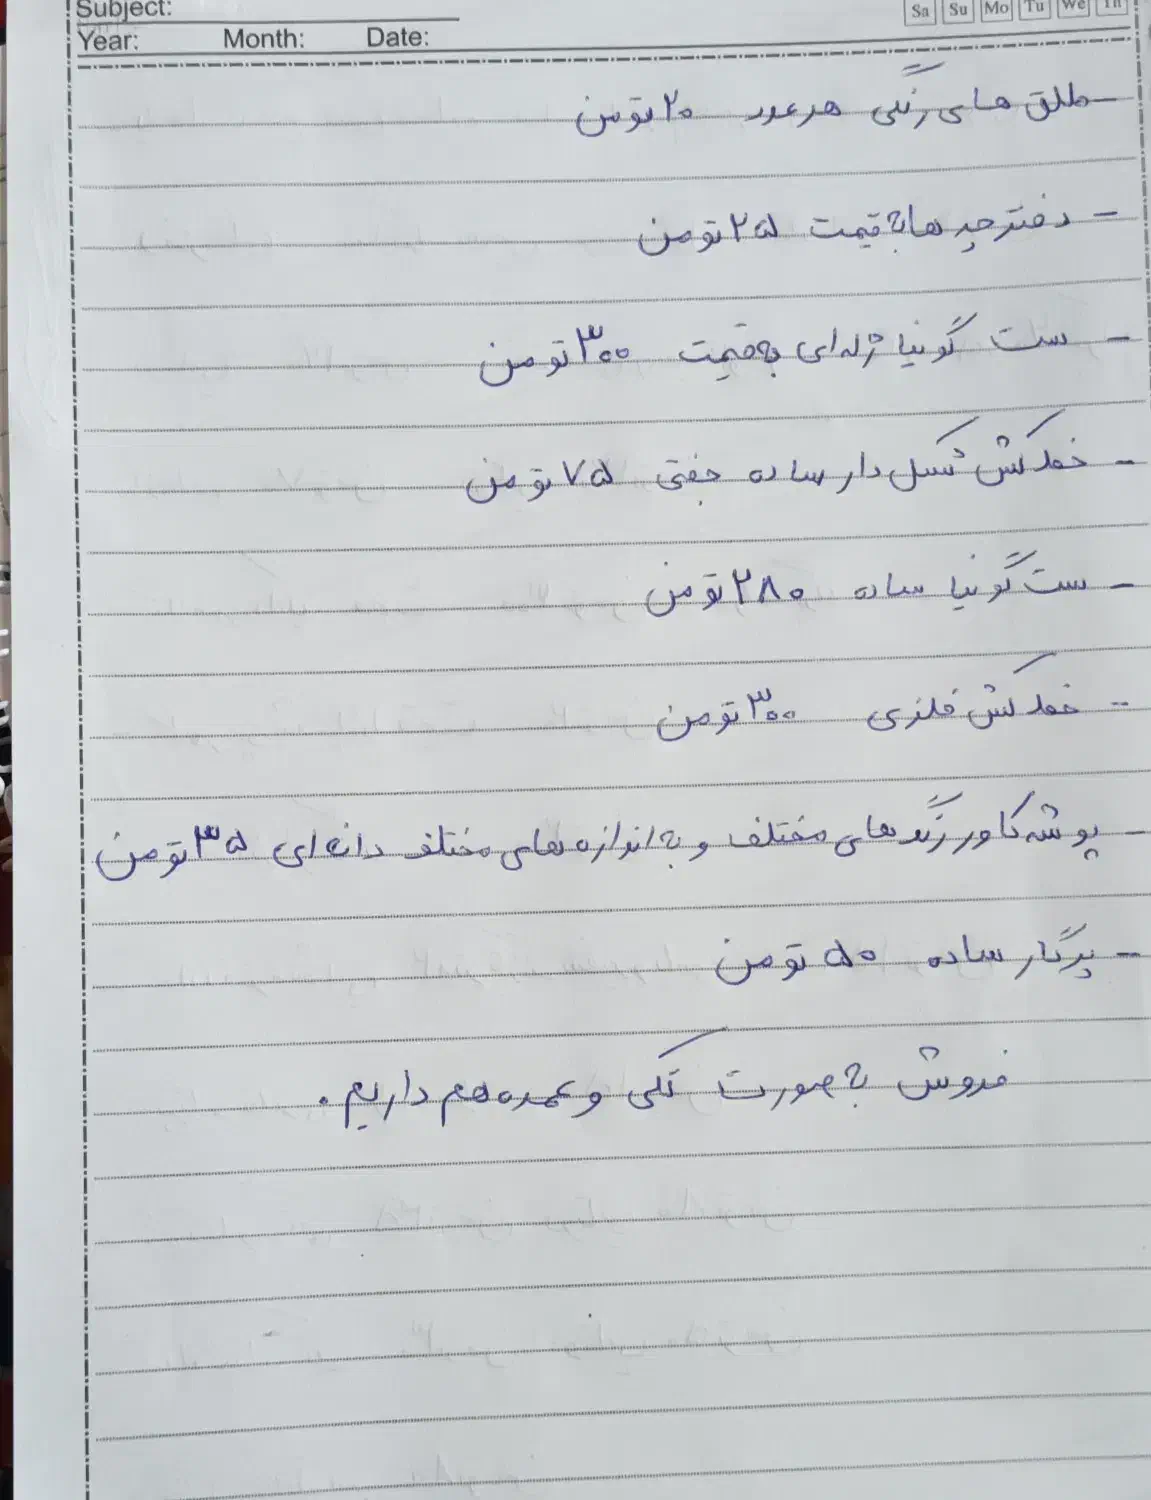 Subject:
Sa Su Mo Tu We Th
Year: Month: Date:
- طلق های رنگی هر عدد ۲۰ تومن
- دفترچه ها به قیمت ۲۵ تومن
- ست گونیا ژله ای به قیمت ۳۰۰ تومن
- خط کش شکل دار ساده جفتی ۷۵ تومن
- ست گونیا ساده ۲۸۰ تومن
- خط کش فلزی ۳۰۰ تومن
- پوشه کاور رنگ های مختلف و به اندازه های مختلف دانه ای ۳۵ تومن
- پرگار ساده ۵۰ تومن
فروش به صورت تکی و عمده هم داریم.